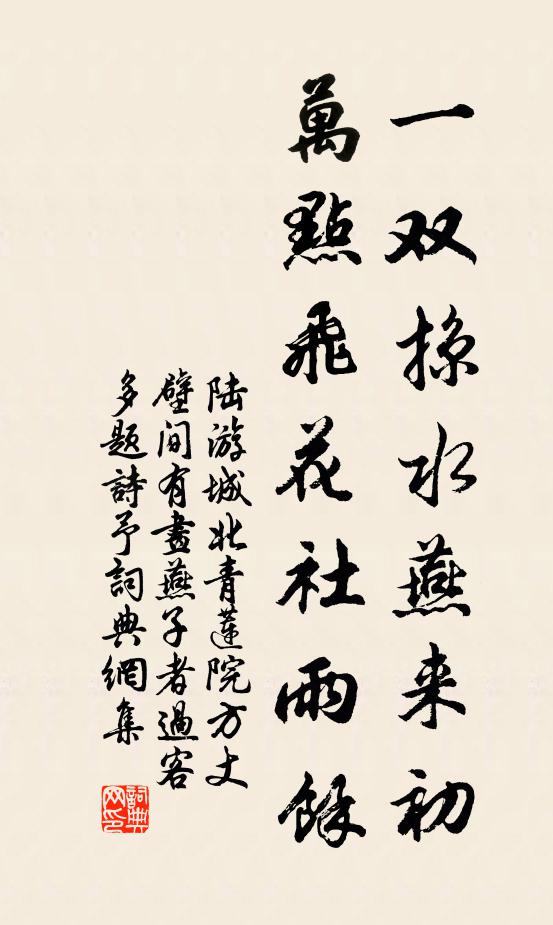 一双掠水燕来初
萬點飛花社雨餘
陆游城北青蓮院方丈
壁间有畫燕子者過客
多题詩予詞典網集
詞典网印